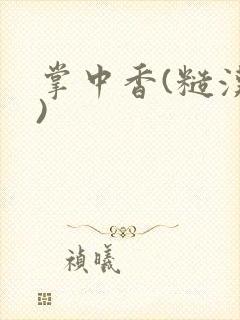 掌中香(糙汉
)
祯曦